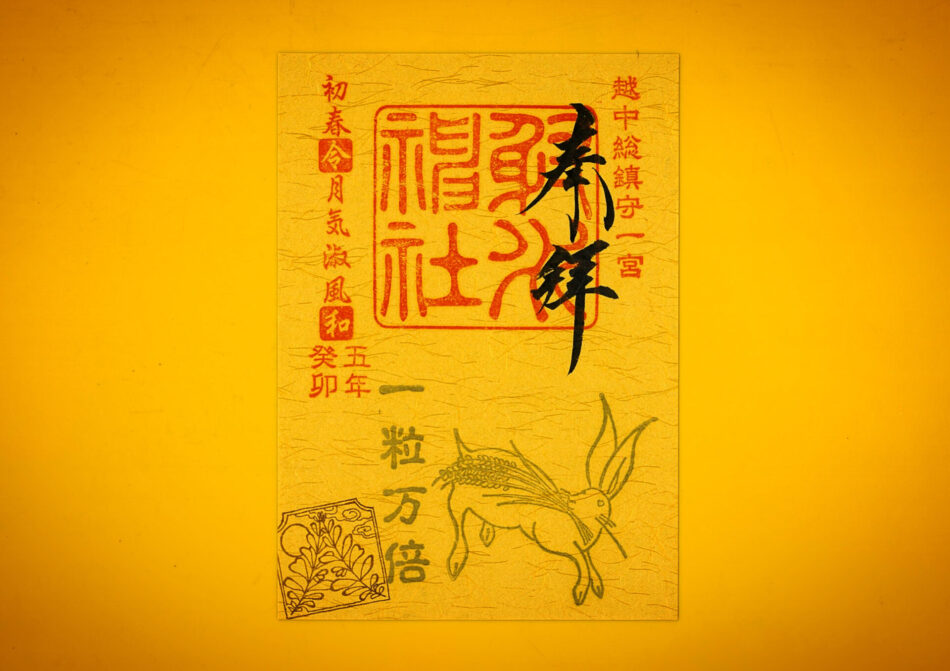 越中総鎮守一宮
奉拝
射水神社
初春令月気淑風和
五年
癸卯
一粒万倍